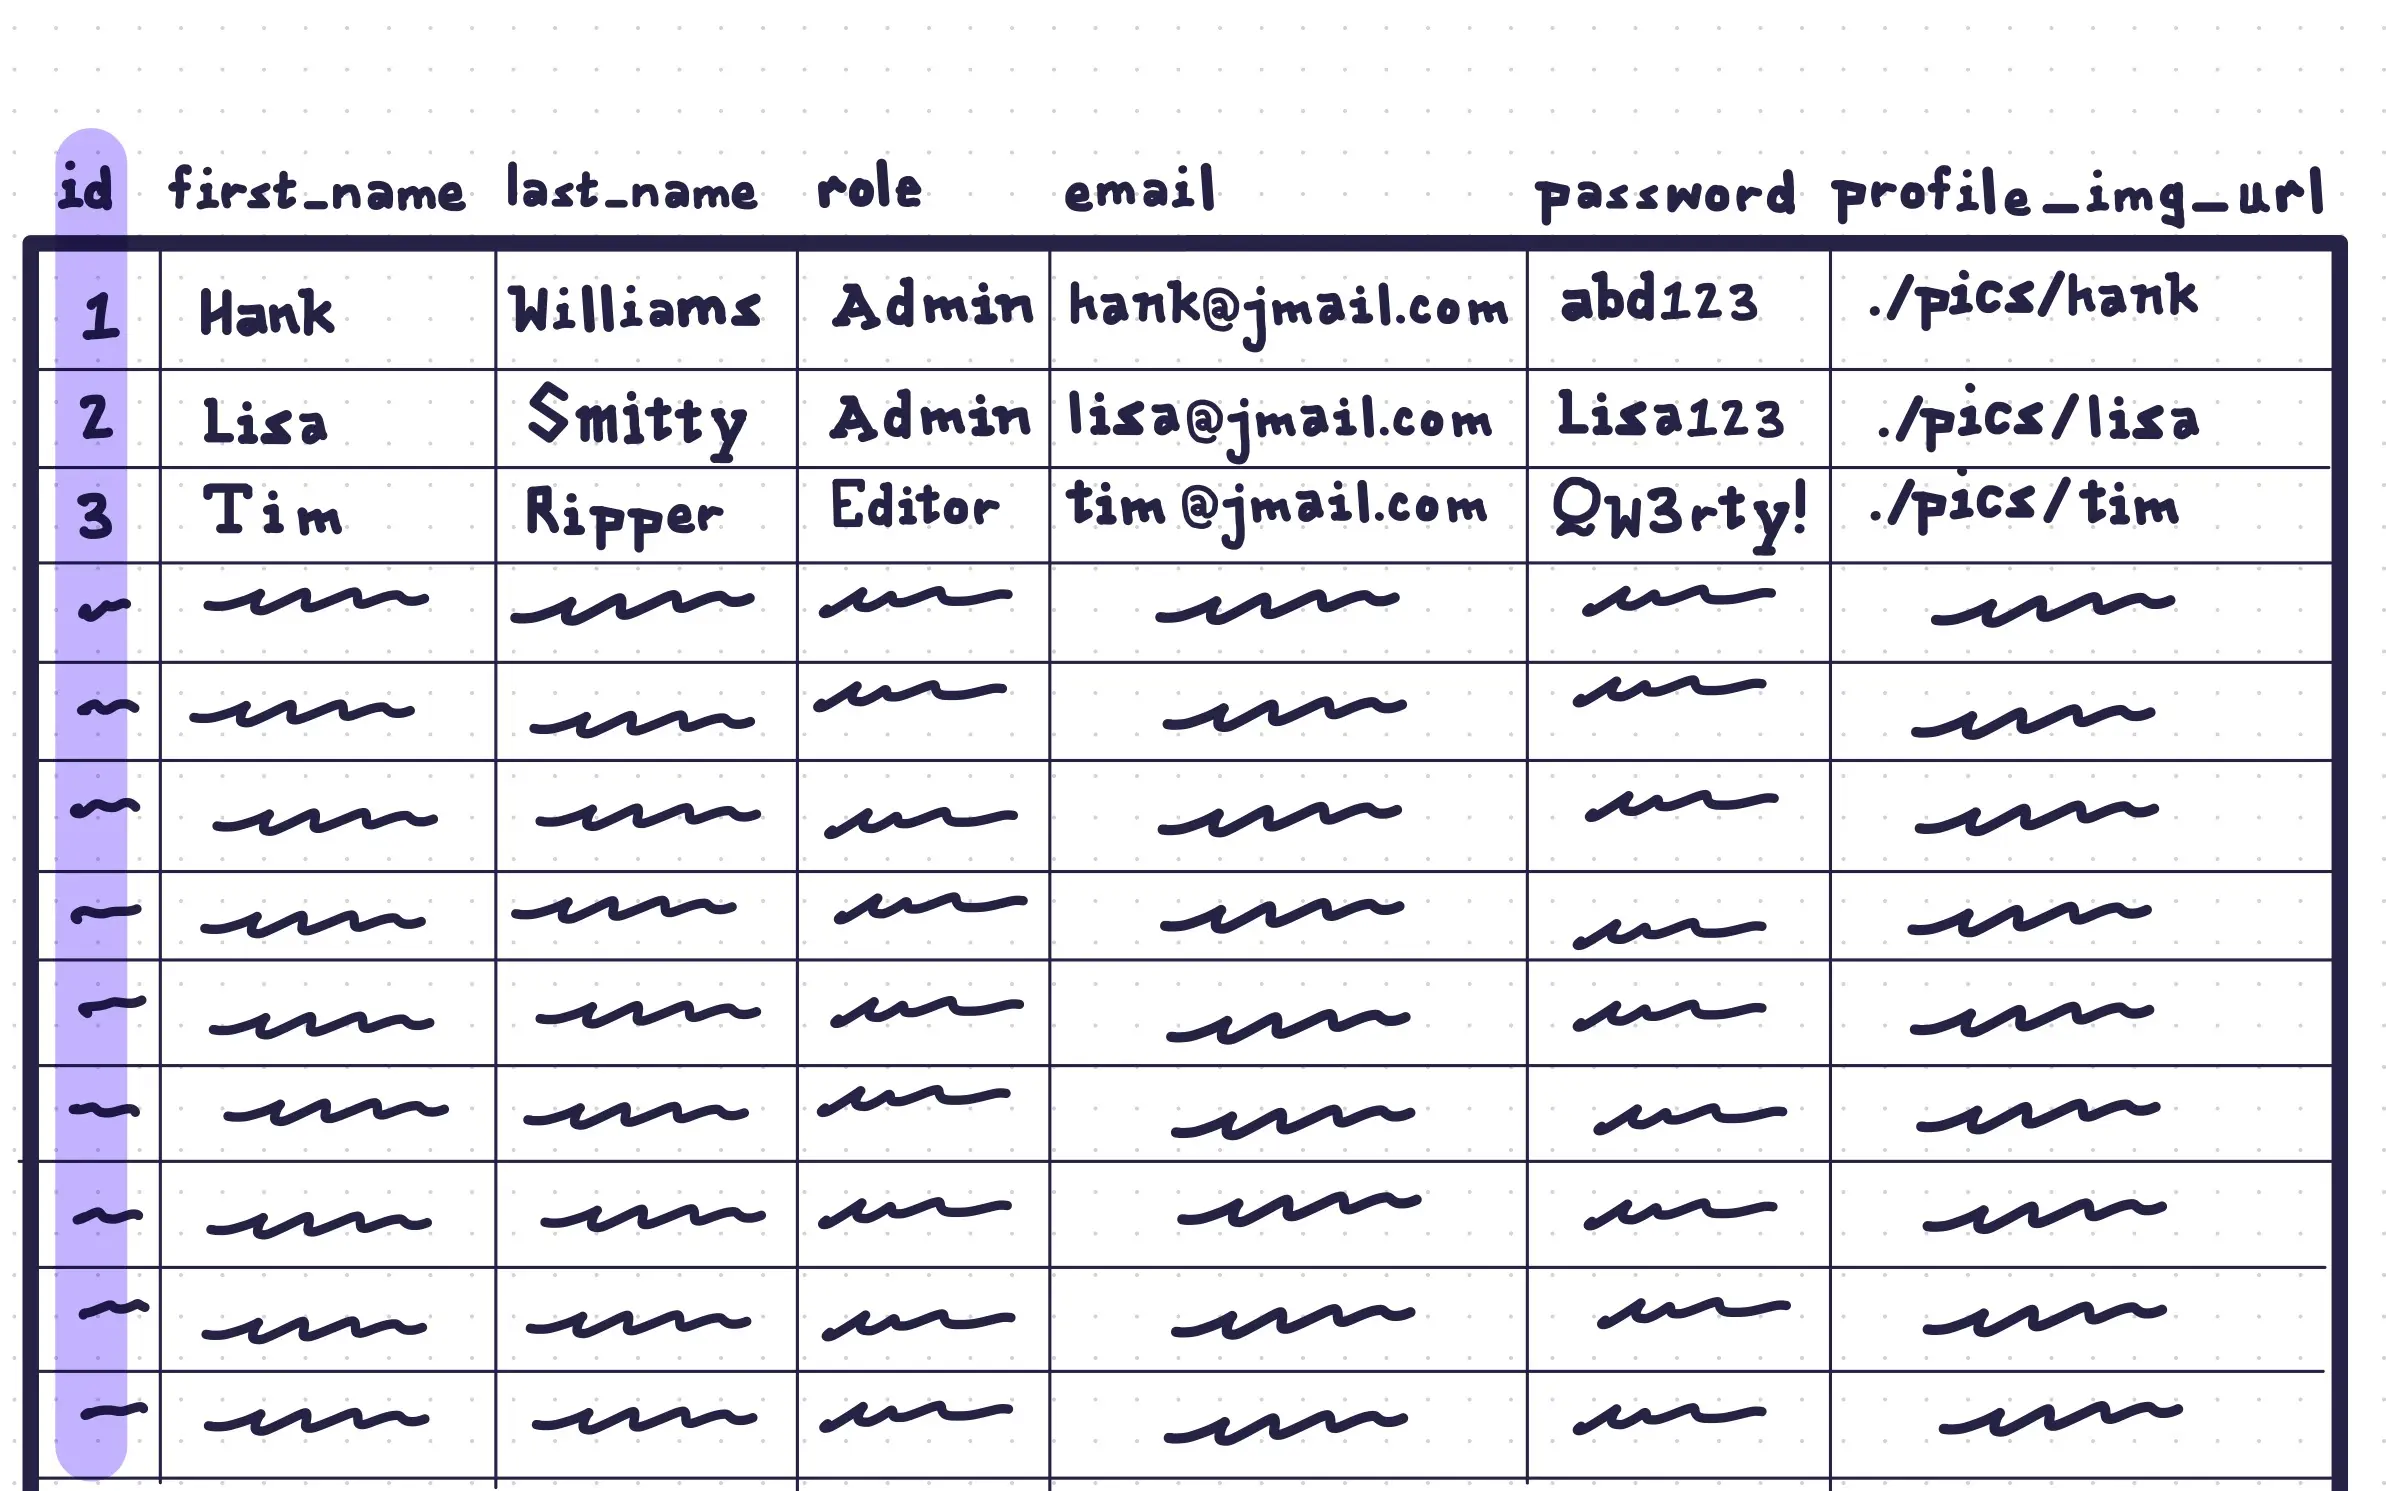 id first_name last_name role email password profile_img_url
1 Hank Williams Admin hank@jmail.com abd123 ./pics/hank
2 Lisa Smitty Admin lisa@jmail.com Lisa123 ./pics/lisa
3 Tim Ripper Editor tim@jmail.com Qw3rty! ./pics/tim